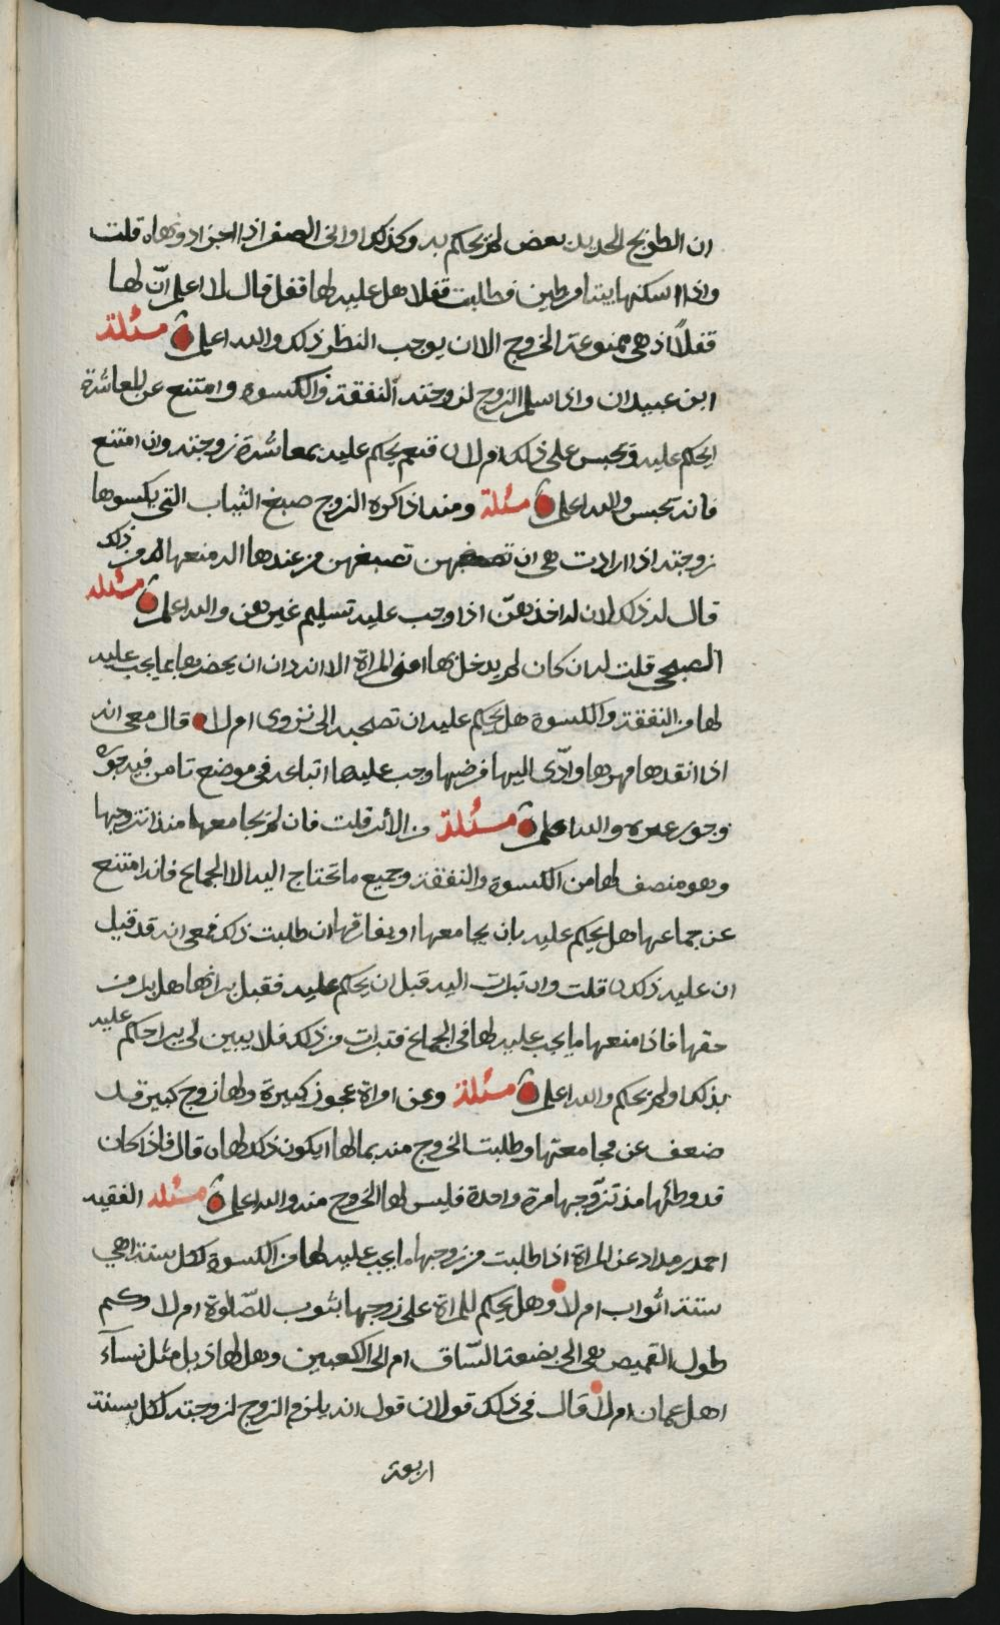 ان الطوبج الحديد بعض لم يحكم به وكذلك اواني الصفر اذا الجزاد ونهاه قلت
واذا اسكنها بيتا من طين فطلبت قفلا هل عليه لها قفل قال لا اعلم انّ لها
قفلاً اذ هي ممنوعة الخروج الا ان يوجب النظر ذلك والله اعلم مسئلة
ابن عبيدان واذا سلم الزوج لزوجته النفقة والكسوة وامتنع عن المعاشرة
ايحكم عليه ويحبس على ذلك ام لا قال نعم يحكم عليه بمعاشرة زوجته وان امتنع
فانه يحبس والله اعلم مسئلة ومنه اذا كره الزوج صبغ الثياب التي يكسوها
زوجته اذا ارادت هي ان تصبغهن من عندها اله منعها من ذلك
قال له ذلك لان له اخذهنّ اذا وجب عليه تسليم غيرهن والله اعلم مسئله
الصبحي قلت له ان كان لم يدخل بها اعني المراة الا انه دان ان يحضرها بما يجب عليه
لها من النفقة والكسوة هل يحكم عليه ان تصحبه الى نزوى ام لا قال معي انه
اذا انقدها مهرها وادّى اليها فرضها وجب عليها اتباعه في موضع تامن فيه جوره
وجور غيره والله اعلم مسئلة من الأثر قلت فان لم يجامعها منذ تزوجها
وهو منصف لها من الكسوة والنفقة وجميع ما تحتاج اليه الا الجماع فانه امتنع
عن جماعها هل يحكم عليه بان يجامعها او يفارقها ان طلبت ذلك فمعي انه قد قيل
ان عليه ذلك قلت وان تبرات اليه قبل ان يحكم عليه فقبل برانها هل يبرا من
حقها فاذا منعها ما يجب عليه لها في الجماع فتبرات من ذلك فلا يبين لي يبرا حكم عليه
بذلك او لم يحكم والله اعلم مسئلة وعن امراة عجوز كبيرة ولها زوج كبير قد
ضعف عن مجامعتها وطلبت الخروج منه بمالها ايكون ذلك لها قال فاذا كان
قد وطئها مذ تزوّجها مرة واحدة فليس لها الخروج منه والله اعلم مسئله الفقيه
احمد بن مداد عن المراة اذا طلبت من زوجها ما يجب عليه لها من الكسوة لكل سنة اهي
ستة اثواب ام لا وهل يحكم للمراة على زوجها بثوب للصّلوة ام لا وكم
طول القميص هي الى بضعة السّاق ام الى الكعبين وهل لها ذيل مثل نسآء
اهل عمان ام لا قال في ذلك قولان قول انه يلزم الزوج لزوجته لكل سنة
اربعة